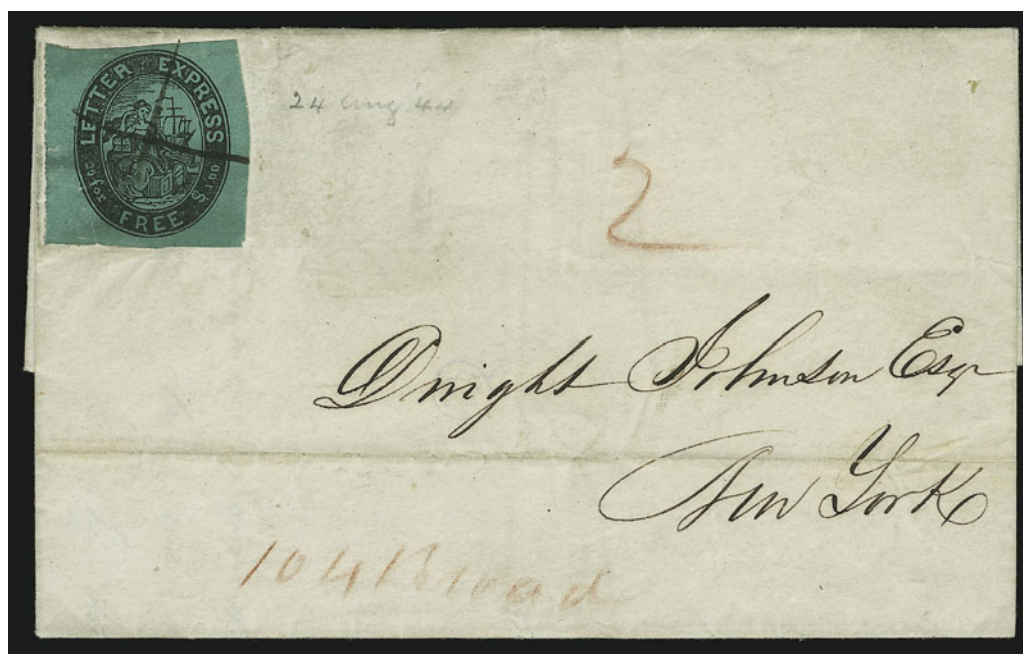 LETTER EXPRESS
FREE
20 for $1.00
24 Aug '44
2
Dwight Johnson Esqr
New York
104 Broad